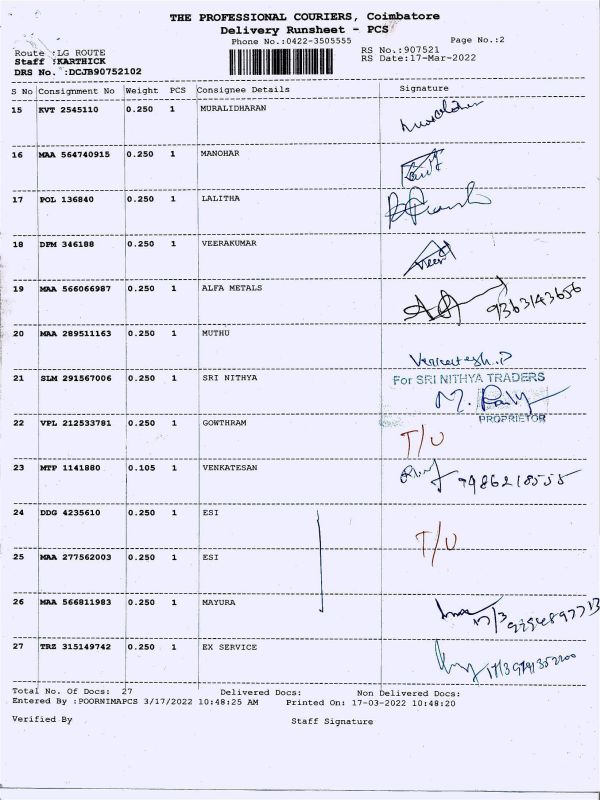 THE PROFESSIONAL COURIERS, Coimbatore
Delivery Runsheet - PCS
Phone No.:0422-3505555 Page No.:2
Route :LG ROUTE RS No.:907521
Staff :KARTHICK RS Date:17-Mar-2022
DRS No. :DCJB90752102
S No Consignment No Weight PCS Consignee Details Signature
15 KVT 2545110 0.250 1 MURALIDHARAN
16 MAA 564740915 0.250 1 MANOHAR
17 POL 136840 0.250 1 LALITHA
18 DPM 346188 0.250 1 VEERAKUMAR
19 MAA 566066987 0.250 1 ALFA METALS 9363143656
20 MAA 289511163 0.250 1 MUTHU
Venkatesh.P
21 SLM 291567006 0.250 1 SRI NITHYA For SRI NITHYA TRADERS
PROPRIETOR
22 VPL 212533781 0.250 1 GOWTHRAM T/U
23 MTP 1141880 0.105 1 VENKATESAN 9986218555
24 DDG 4235610 0.250 1 ESI T/U
25 MAA 277562003 0.250 1 ESI
26 MAA 566811983 0.250 1 MAYURA 17/3
27 TRZ 315149742 0.250 1 EX SERVICE 17/3
Total No. Of Docs: 27 Delivered Docs: Non Delivered Docs:
Entered By :POORNIMAPCS 3/17/2022 10:48:25 AM Printed On: 17-03-2022 10:48:20
Verified By Staff Signature